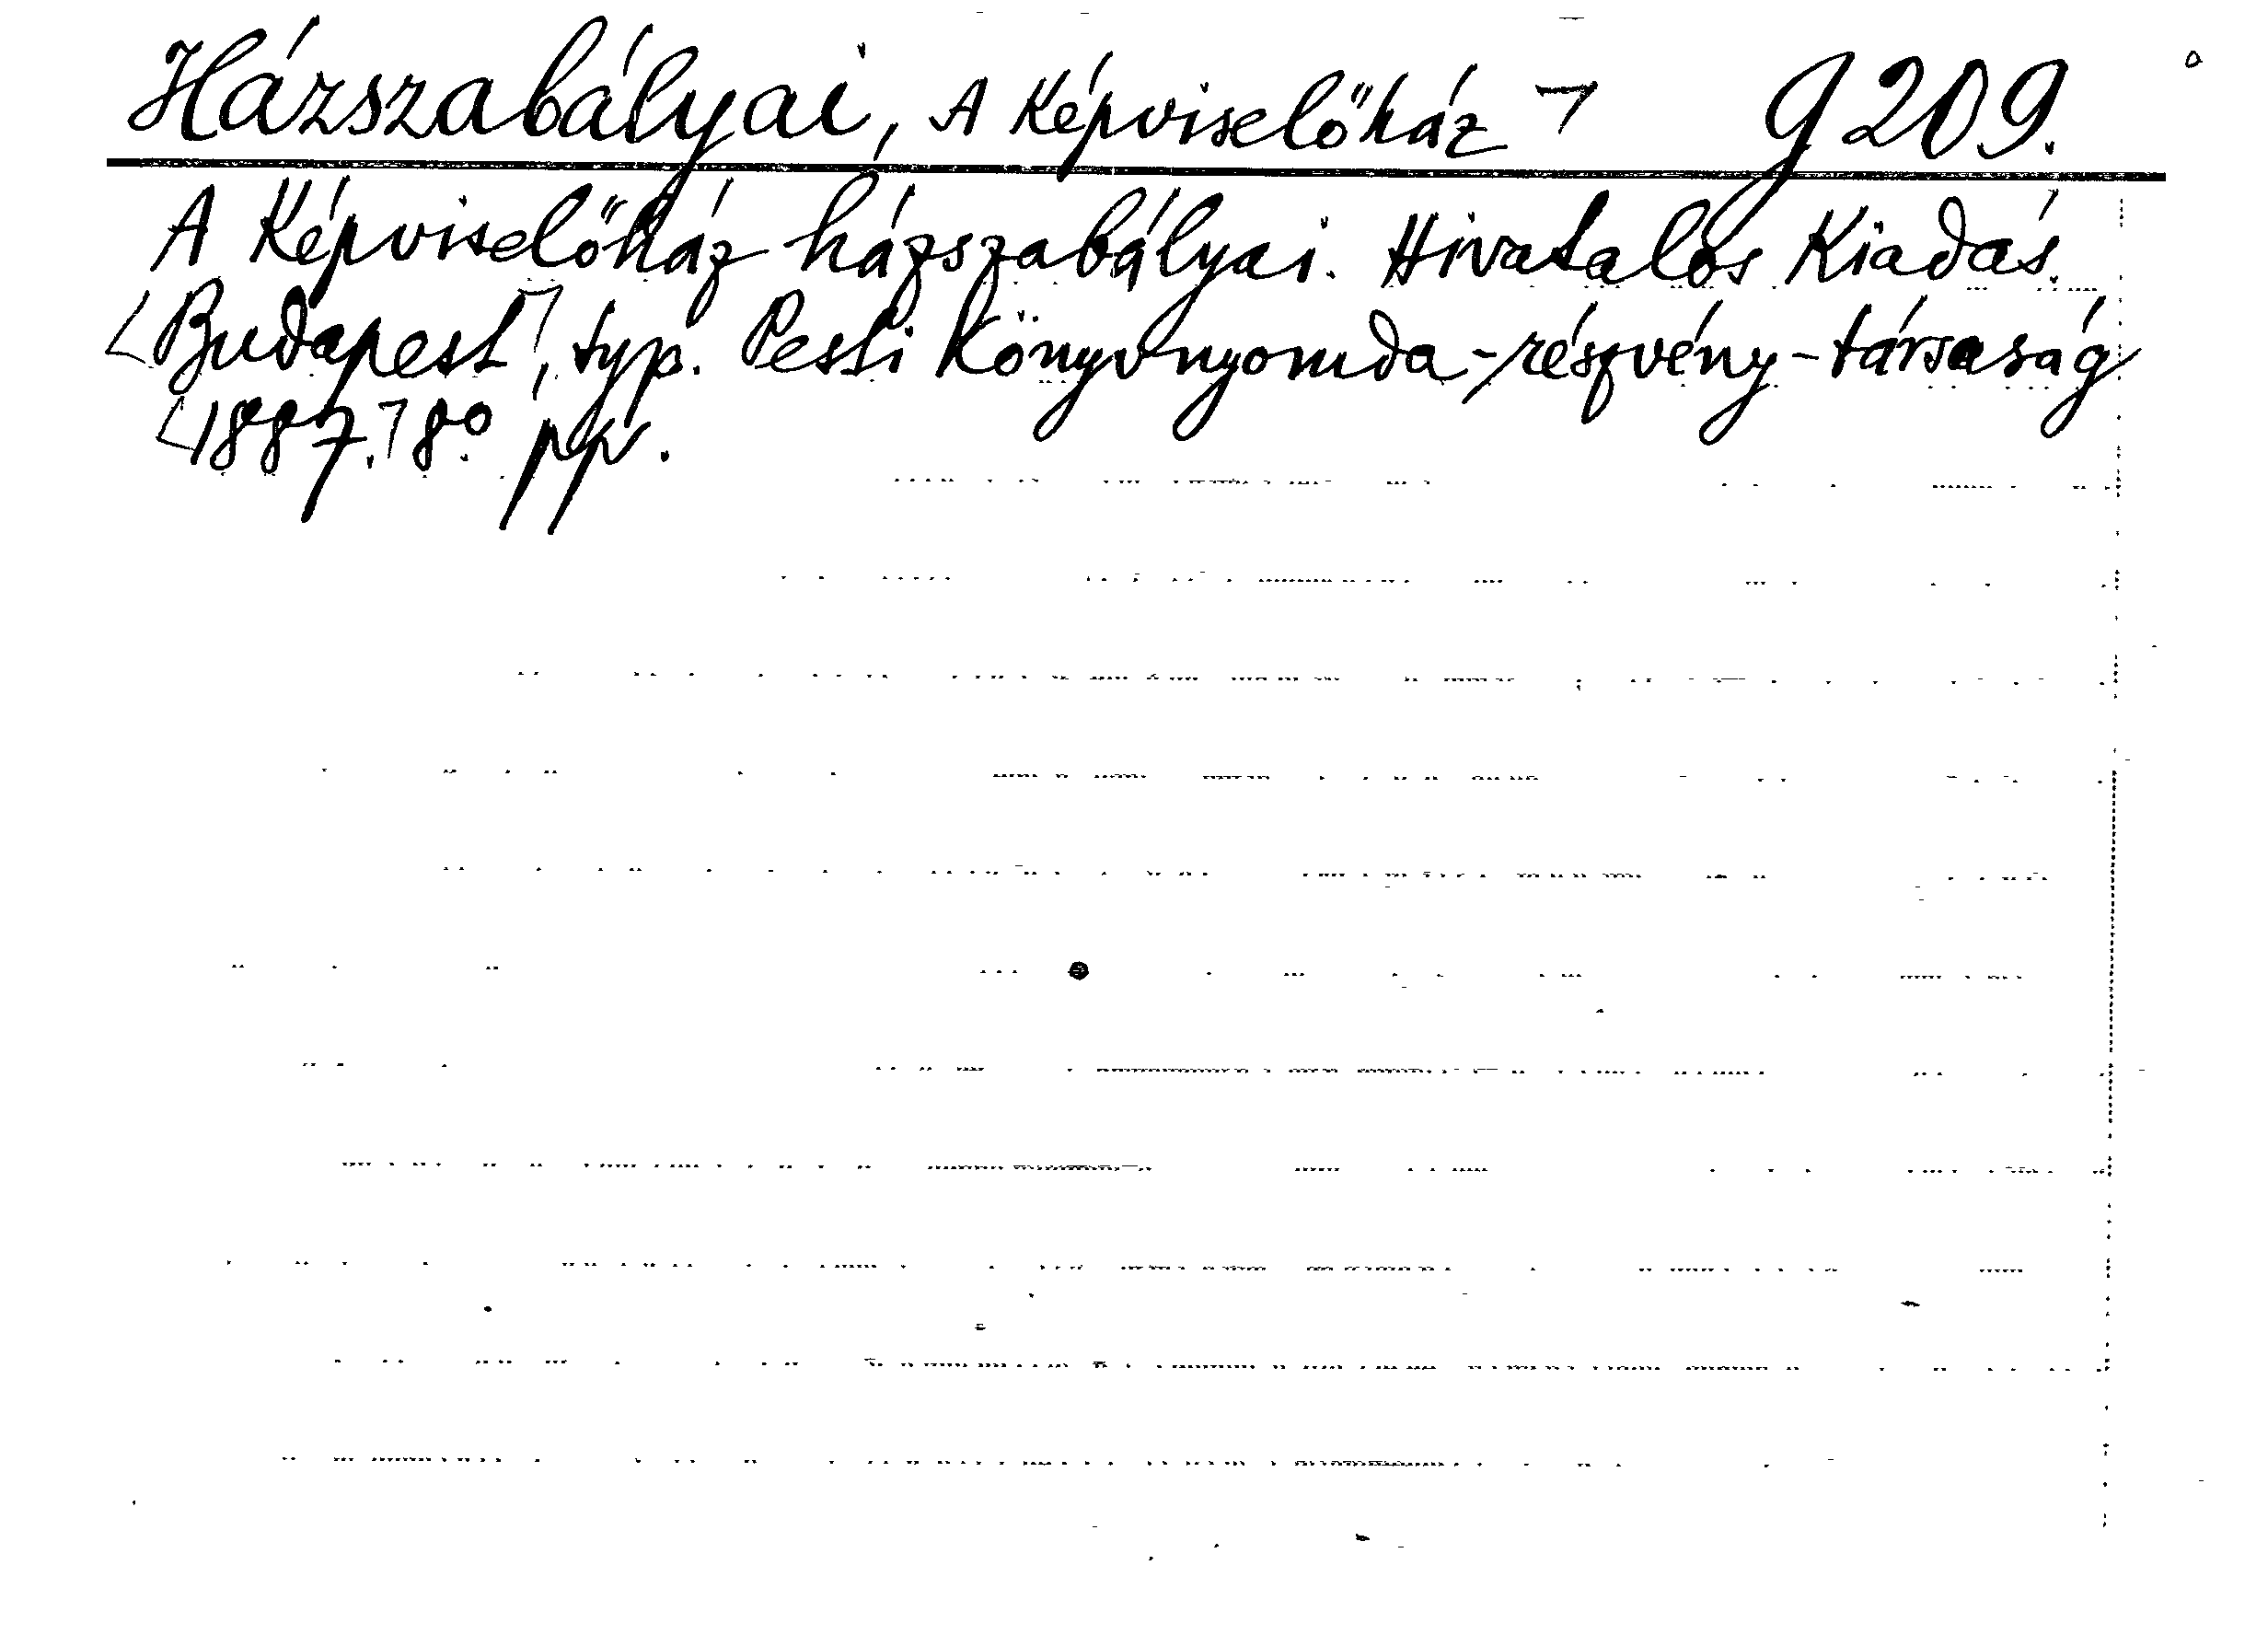 Házszabályai, A Képviselőház ¬ g 209.
A Képviselőház házszabályai. Hivatalos Kiadás.
[Budapest], typ. Pesti Könyvnyomda-részvény-társaság
[1887.] 8° pp.